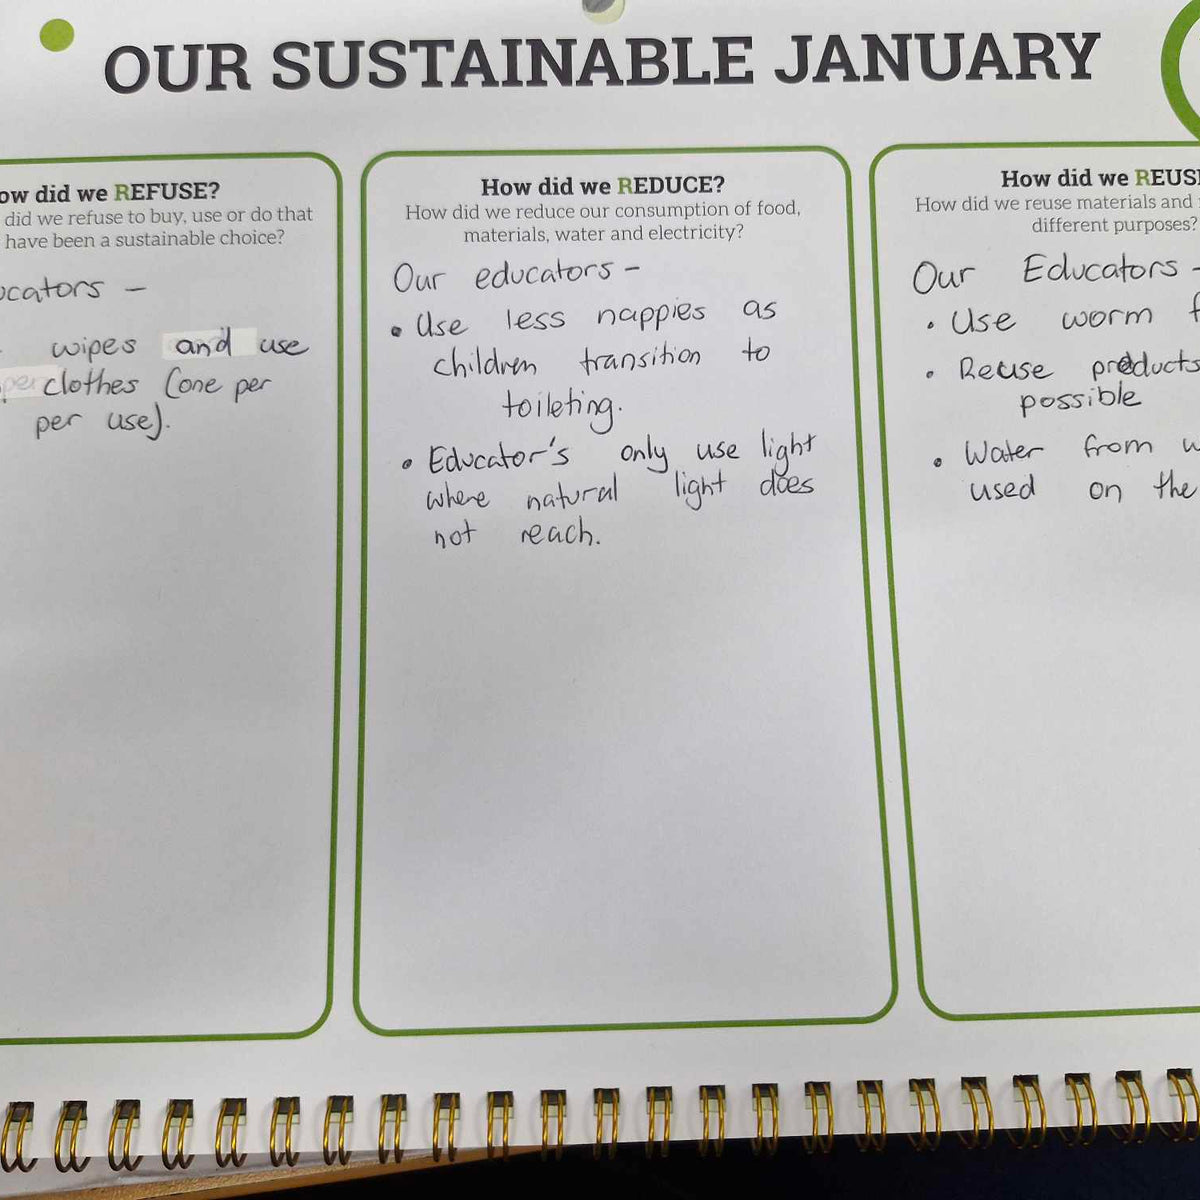 OUR SUSTAINABLE JANUARY
ow did we REFUSE?
did we refuse to buy, use or do that
have been a sustainable choice?
ucators -
wipes and use
per clothes (one per
per use).
How did we REDUCE?
How did we reduce our consumption of food,
materials, water and electricity?
Our educators -
• Use less nappies as
children transition to
toileting.
• Educator's only use light
where natural light does
not reach.
How did we REUS
How did we reuse materials and
different purposes?
Our Educators -
• Use worm
• Reuse products
possible
• Water from
used on the